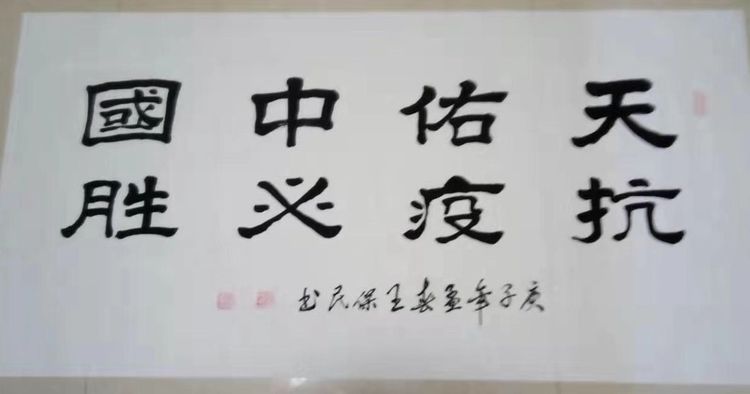 天佑中國
抗疫必胜
庚子年孟春王保民书